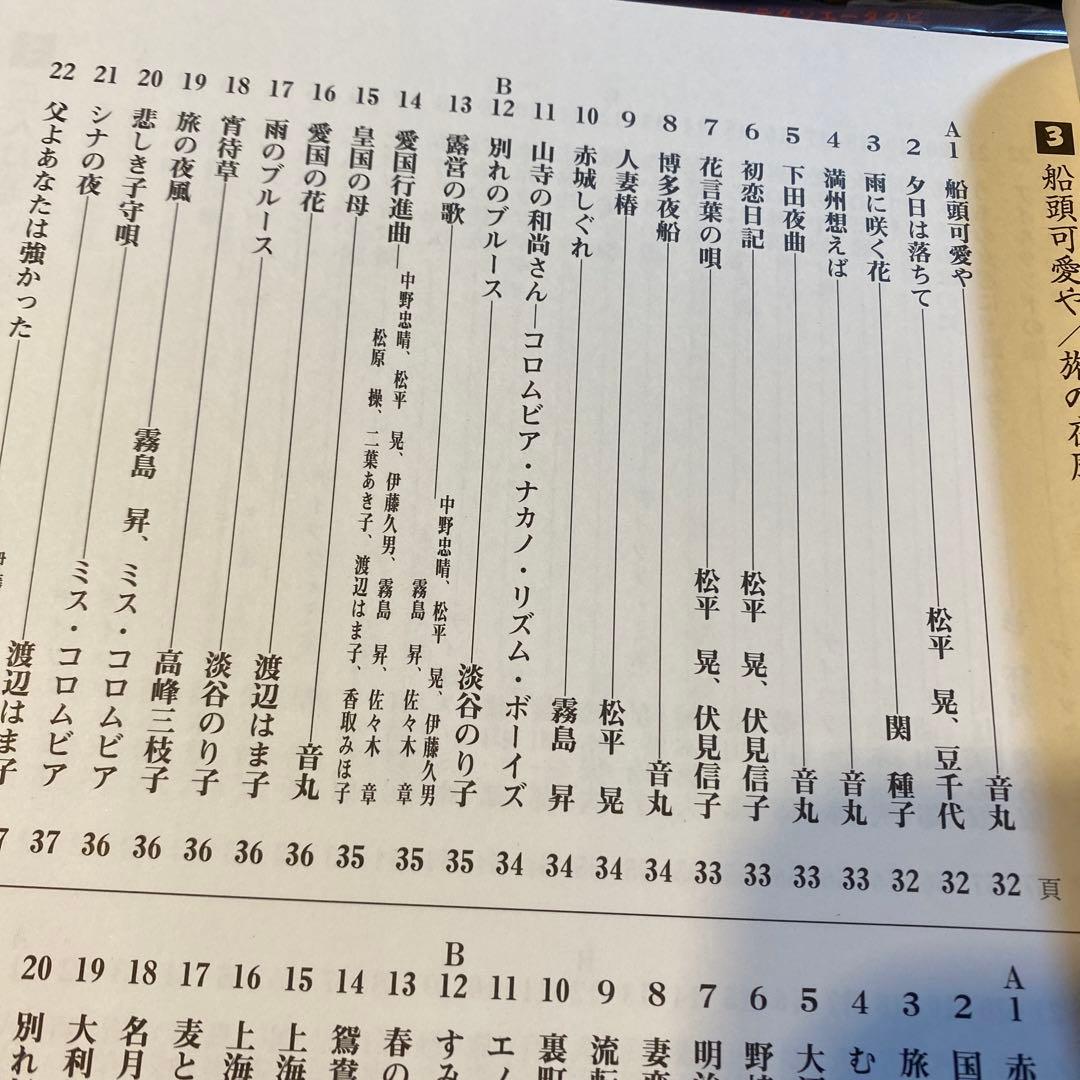 3 船頭可愛や/旅の夜風
頁
A1 船頭可愛や 音丸 32
2 夕日は落ちて 松平 晃、豆千代 32
3 雨に咲く花 関 種子 32
4 満州想えば 音丸 33
5 下田夜曲 音丸 33
6 初恋日記 松平 晃、伏見信子 33
7 花言葉の唄 松平 晃、伏見信子 33
8 博多夜船 音丸 34
9 人妻椿 松平 晃 34
10 赤城しぐれ 霧島 昇 34
11 山寺の和尚さん コロムビア・ナカノ・リズム・ボーイズ 34
B12 別れのブルース 淡谷のり子 35
13 露営の歌 中野忠晴、松平 晃、伊藤久男
霧島 昇、佐々木 章 35
14 愛国行進曲 中野忠晴、松平 晃、伊藤久男、霧島 昇、佐々木 章
松原 操、二葉あき子、渡辺はま子、香取みほ子 35
15 皇国の母 音丸 36
16 愛国の花 渡辺はま子 36
17 雨のブルース 淡谷のり子 36
18 宵待草 高峰三枝子 36
19 旅の夜風 霧島 昇、ミス・コロムビア 36
20 悲しき子守唄 ミス・コロムビア 37
21 シナの夜 渡辺はま子 7
22 父よあなたは強かった
A1 赤
2 国
3 旅
4 む
5 大
6 野
7 明
8 妻
9 流
10 裏町
11 エノ
B12 すみ
13 春の
14 鴛鴦
15 上海
16 上海
17 麦と
18 名月
19 大利
20 別れ